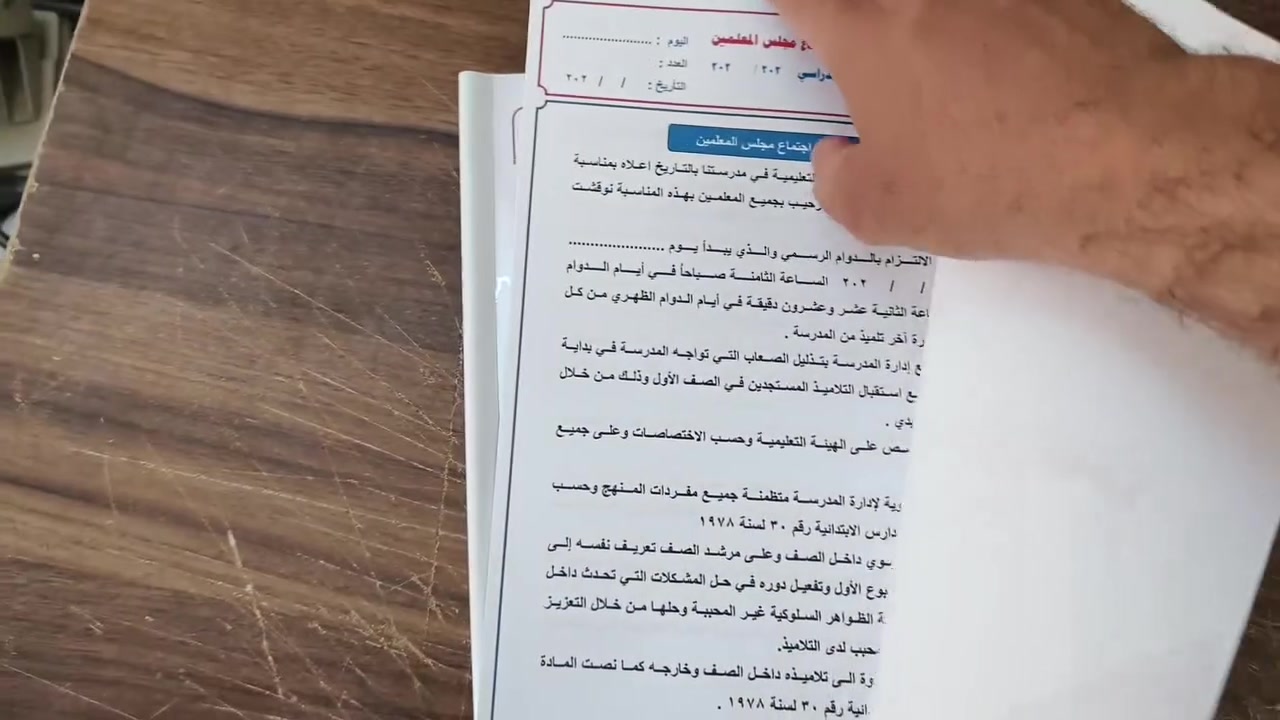 مجلس المعلمين
اليوم : ........................
العدد :
٢٠٢ / ٢٠٢
التاريخ : / / ٢٠٢
اجتماع مجلس المعلمين
التعليمية في مدرستنا بالتاريخ اعلاه بمناسبة
بجميع المعلمين بهذه المناسبة نوقشت
الالتزام بالدوام الرسمي والذي يبدأ يوم ......................
/ / ٢٠٢ الساعة الثامنة صباحاً في أيام الدوام
الثانية عشر وعشرون دقيقة في أيام الدوام الظهري من كل
آخر تلميذ من المدرسة .
إدارة المدرسة بتذليل الصعاب التي تواجه المدرسة في بداية
استقبال التلاميذ المستجدين في الصف الأول وذلك من خلال
على الهيئة التعليمية وحسب الاختصاصات وعلى جميع
لإدارة المدرسة متظمنة جميع مفردات المنهج وحسب
الابتدائية رقم ٣٠ لسنة ١٩٧٨
داخل الصف وعلى مرشد الصف تعريف نفسه إلى
الأول وتفعيل دوره في حل المشكلات التي تحدث داخل
الظواهر السلوكية غير المحببة وحلها من خلال التعزيز
لدى التلاميذ.
الى تلاميذه داخل الصف وخارجه كما نصت المادة
رقم ٣٠ لسنة ١٩٧٨ .